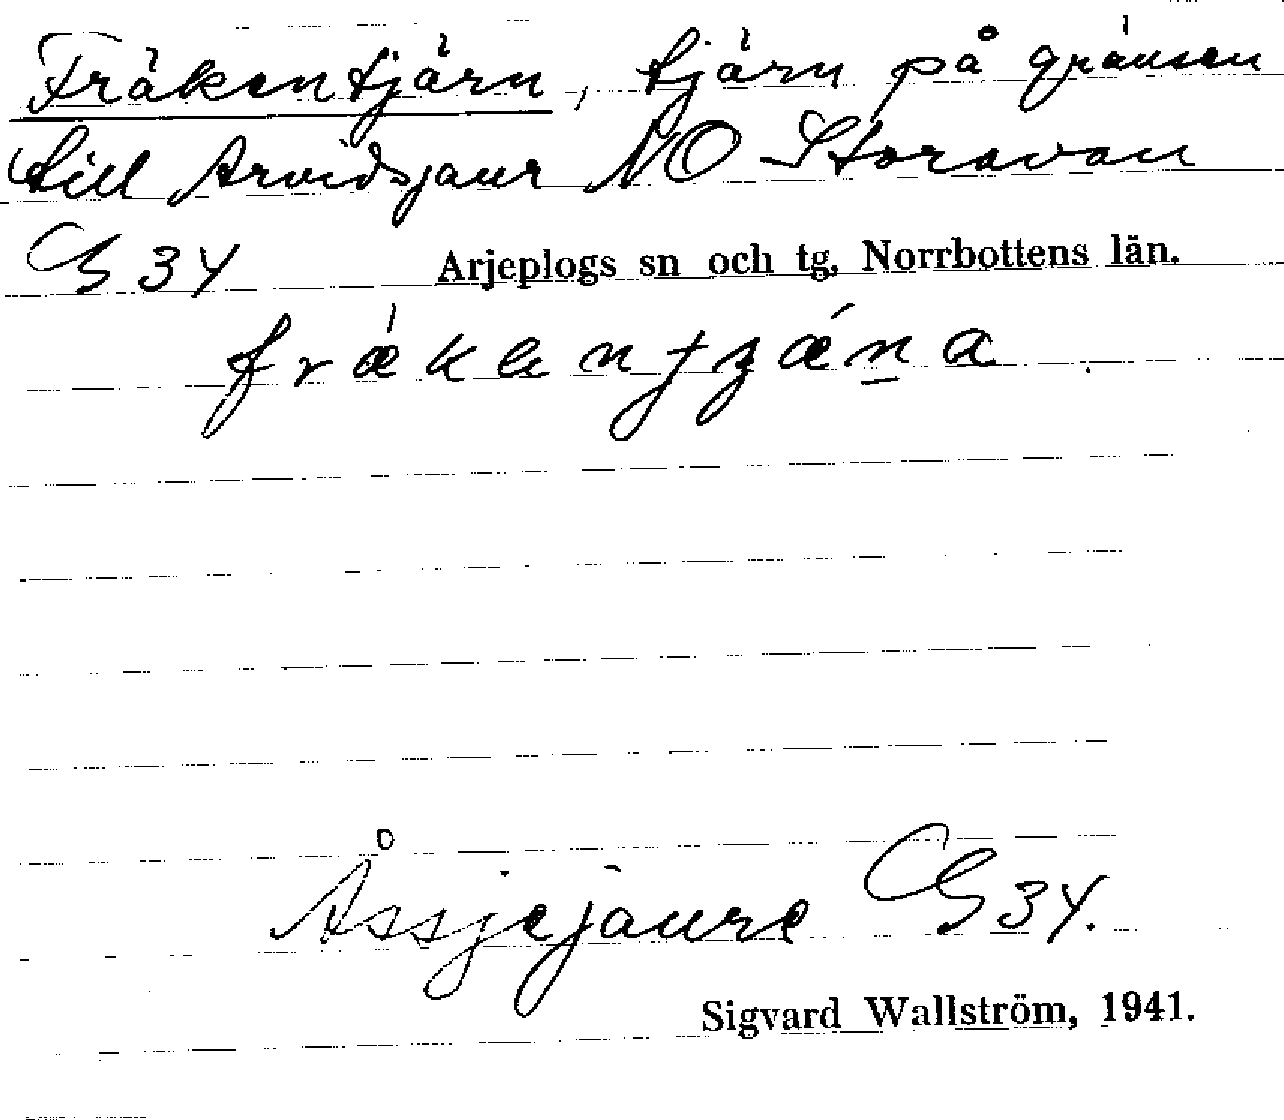 Fräkentjärn, tjärn på gränsen
till Arvidsjaur NO Storavan
G 34 Arjeplogs sn och tg, Norrbottens län.
Åssjejaure G 34.
Sigvard Wallström, 1941.